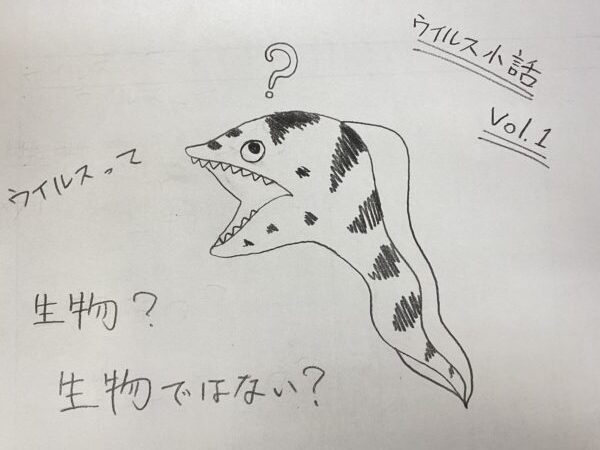 ウイルス小話
Vol.1
?
ウイルスって
生物?
生物ではない?